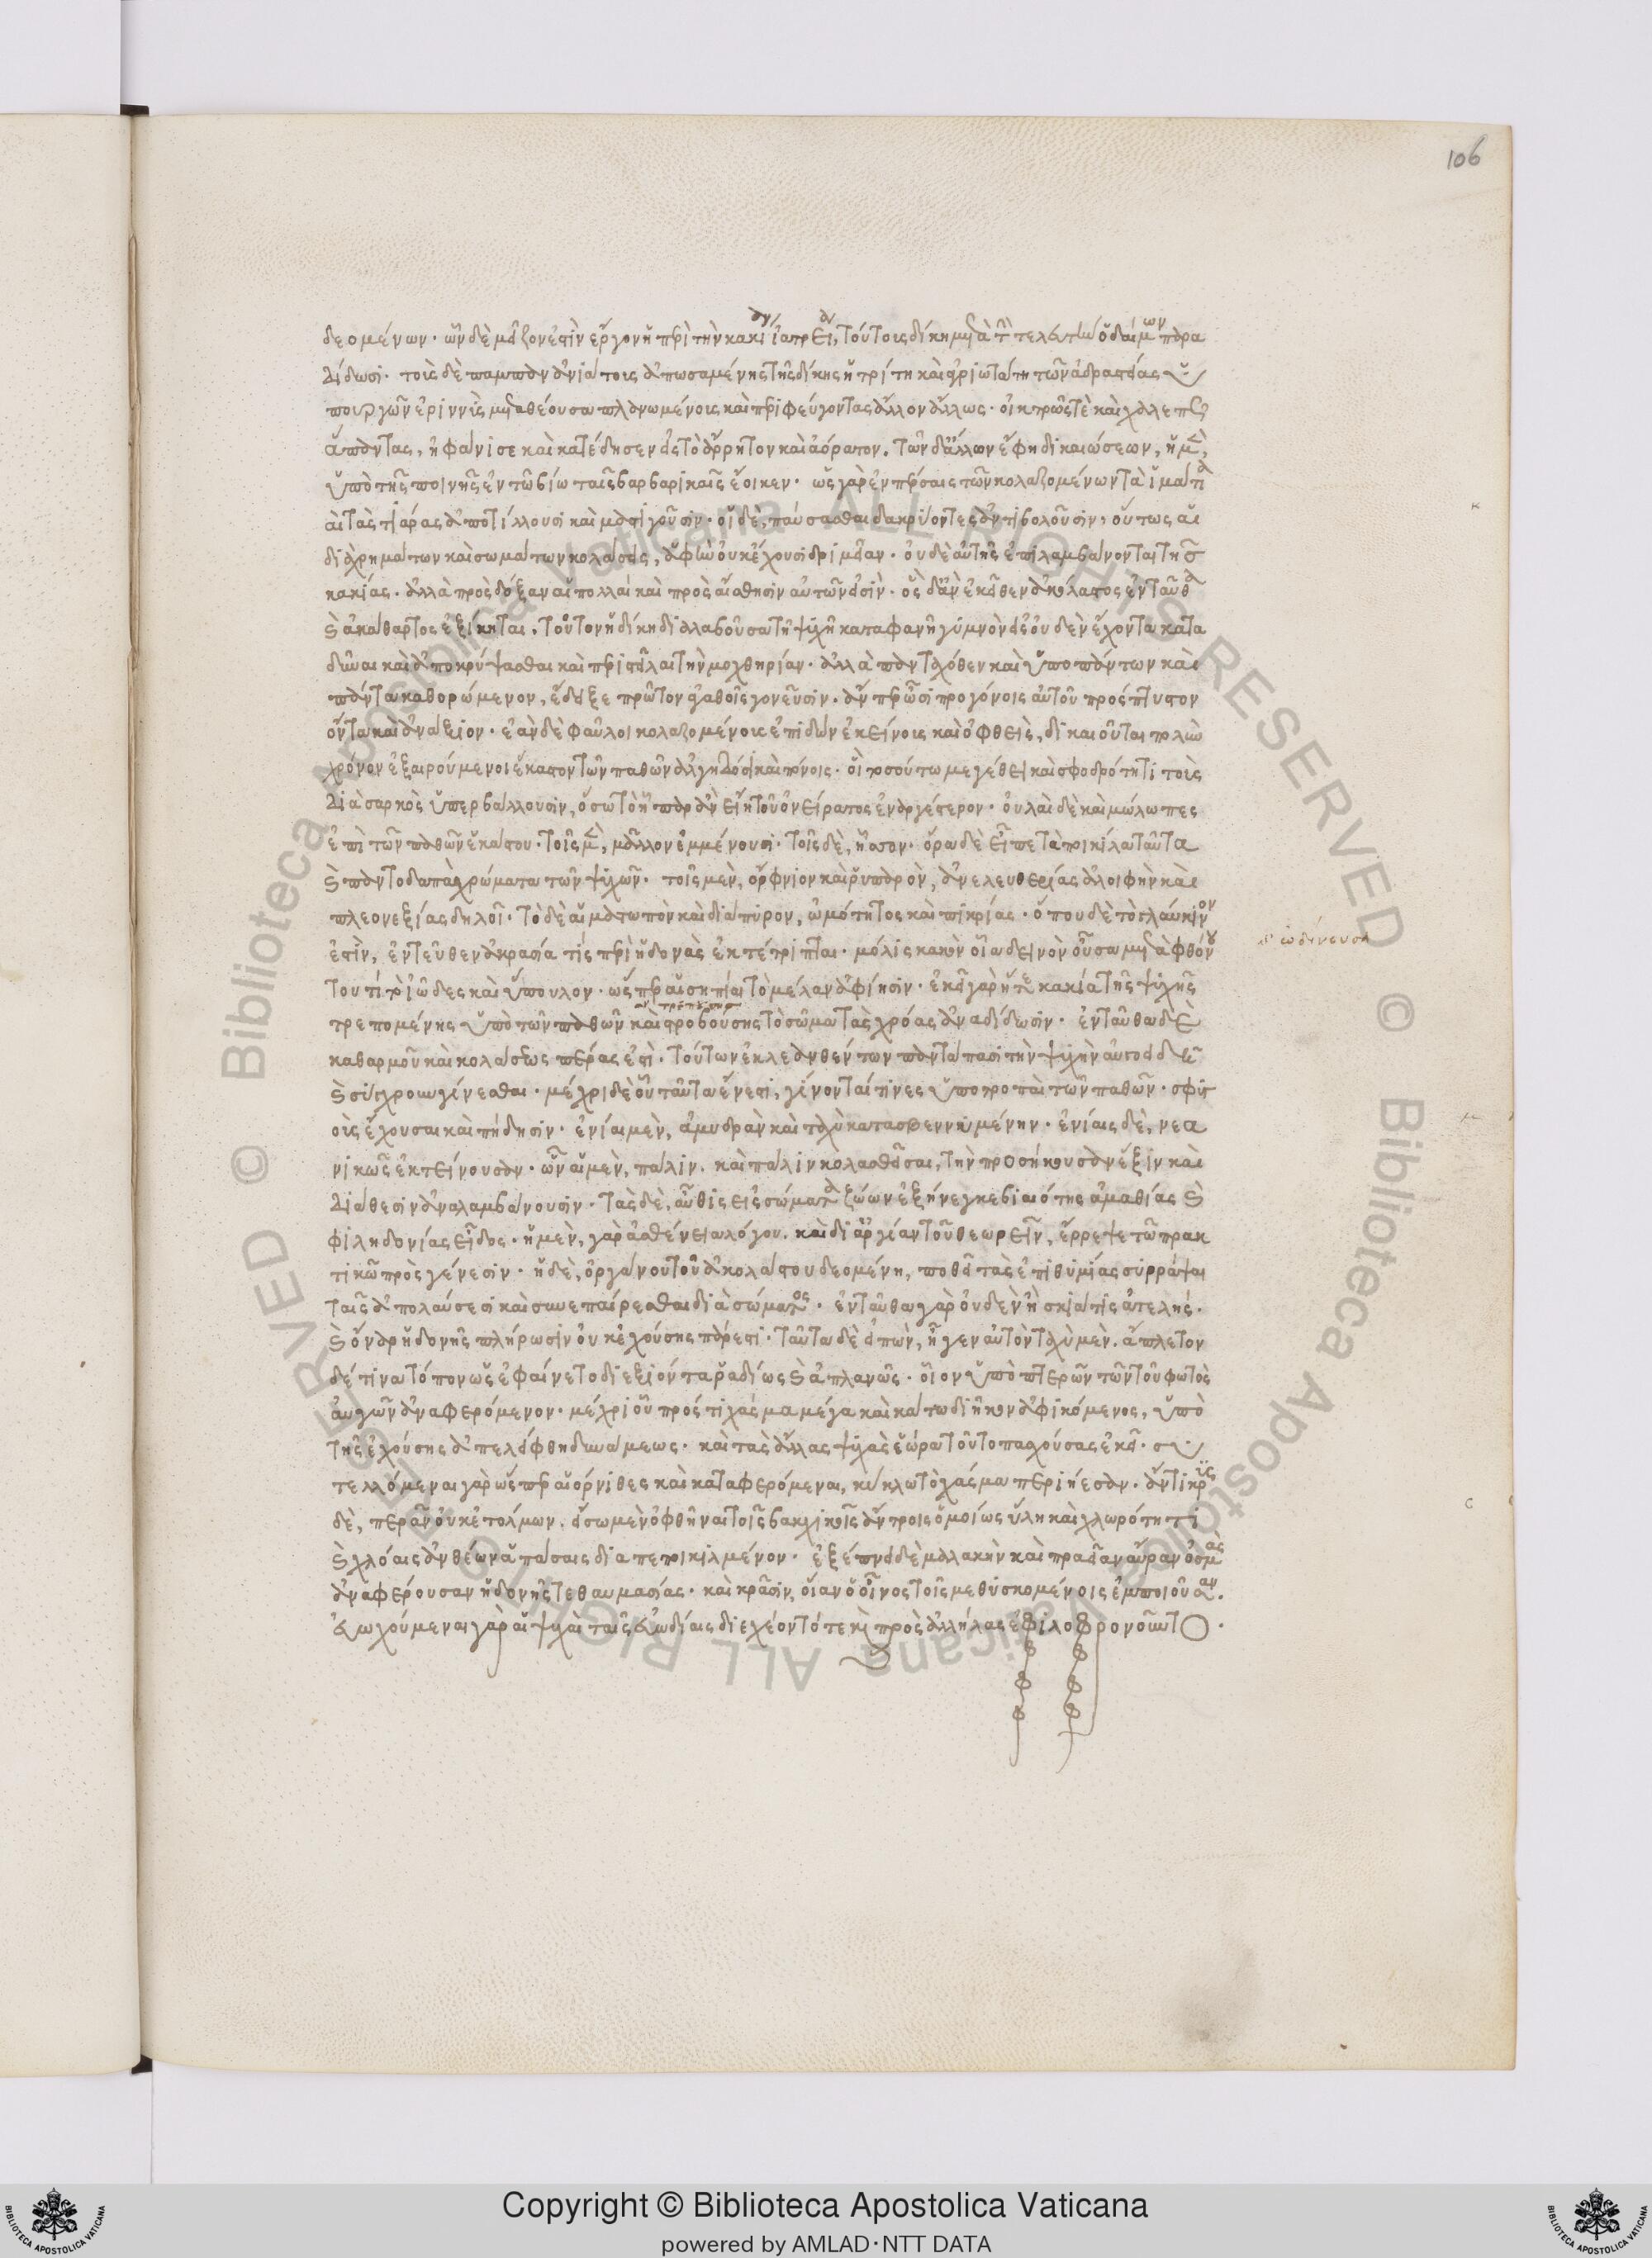 106
δεομένων· ὧν δὲ μεῖζον ἐστὶν ἔργον ἡ περὶ τὴν κακίαν ἰατρεία, τούτοις δίκη μετὰ τὴν τελευτὴν ὁ δαίμων παρα
δίδωσι· τοῖς δὲ πάμπαν ἀνιάτοις ἀπωσαμένης τῆς δίκης ἡ τρίτη καὶ ἀγριωτάτη τῶν ἀδραστείας ὑ
πουργῶν ἐριννὺς μεταθέουσα πλανωμένοις καὶ περιφεύγοντας ἄλλον ἄλλως· οἰκτρῶς τὲ καὶ χαλεπῶς
ἅπαντας, ἠφάνισε καὶ κατέδησεν εἰς τὸ ἄρρητον καὶ ἀόρατον. τῶν δ' ἄλλων ἔφη δικαιώσεων, ἡ μὲν,
ὑπὸ τῆς ποινῆς ἐν τῶ βίω ταῖς βαρβαρικαῖς ἔοικεν· ὡς γὰρ ἐν πέρσαις τῶν κολαζομένων τὰ ἱμάτια
καὶ τὰς τιάρας ἀποτίλλουσι καὶ μαστιγοῦσιν· οἱ δὲ, παύσασθαι δακρύοντες ἀντιβολοῦσιν, οὕτως αἱ
διὰ χρημάτων καὶ σωμάτων κολάσεις, ἀφὴν οὐκ ἔχουσι δριμεῖαν· οὐδὲ αὐτῆς ἐπιλαμβάνονται τῆς
κακίας· ἀλλὰ πρὸς δόξαν αἱ πολλαὶ καὶ πρὸς αἴσθησιν αὐτῶν εἰσίν· ὃς δ' ἂν ἐκεῖθεν ἀκόλαστος ἐνταῦθα
καὶ ἀκάθαρτος ἐξίκηται. τοῦτον ἡ δίκη διαλαβοῦσα τῆ ψυχῆ καταφανῆ γυμνὸν εἰς οὐδὲν ἔχοντα κατα
δῦναι καὶ ἀποκρύψασθαι καὶ περιστεῖλαι τὴν μοχθηρίαν· ἀλλὰ πανταχόθεν καὶ ὑπὸ πάντων καὶ
πάντα καθορώμενον, ἔδειξε πρῶτον ἀγαθοῖς γονεῦσιν· ἂν περ ὦσι προγόνοις αὐτοῦ πρόσπτυστον
ὄντα καὶ ἀνάξιον· ἐὰν δὲ φαῦλοι κολαζομένους ἐπιδὼν ἐκείνους καὶ ὀφθεὶς, δικαιοῦται πολὺν
χρόνον ἐξαιρούμενος ἕκαστον τῶν παθῶν ἀλγηδόσι καὶ πόνοις· οἳ τοσούτω μεγέθει καὶ σφοδρότητι τοὺς
διὰ σαρκὸς ὑπερβάλλουσιν, ὅσω τὸ ὕπαρ ἂν εἴη τοῦ ὀνείρατος ἐναργέστερον· οὐλαὶ δὲ καὶ μώλωπες
ἐπὶ τῶν παθῶν ἑκάστου. τοῖς μὲν, μᾶλλον ἐμμένουσι· τοῖς δὲ, ἧσσον· ὅρα δὲ εἶπε τὰ ποικίλα ταῦτα
καὶ παντοδαπὰ χρώματα τῶν ψυχῶν· τοῖς μὲν, ὄρφνιον καὶ ῥυπαρὸν, ἀνελευθερίας ἀλοιφὴν καὶ
πλεονεξίας δηλοῖ· τὸ δὲ αἱματωπὸν καὶ διάπυρον, ὠμότητος καὶ πικρίας· ὅπου δὲ τὸ γλαύκινον
ἐστὶν, ἐντεῦθεν ἀκρασία τίς περὶ ἡδονὰς ἐκτέτριπται· μόλις κακὸν οἷα δεινὸν οὖσα μετὰ φθόνου
δ ὠδίνουσα
τουτὶ τὸ ἰῶδες καὶ ὕπουλον· ὥσπερ αἱ σηπίαι τὸ μέλαν ἀφίησιν· ἐκεῖ γὰρ ἥτε κακία τῆς ψυχῆς
τρεπομένης ὑπὸ τῶν παθῶν καὶ τροβούσης τὸ σῶμα τὰς χρόας ἀναδίδωσιν· ἐνταῦθα δὲ
καθαρμοῦ καὶ κολάσεως πέρας ἐστὶ· τούτων ἐκλεανθέντων παντάπασι τὴν ψυχὴν αὐγοειδῆ
καὶ σύγχρουν γίνεσθαι· μέχρι δὲ οὗ ταῦτα ἔνεστι, γίνονταί τινες ὑποτροπαὶ τῶν παθῶν· σφυγ
οὺς ἔχουσαι καὶ πήδησιν· ἐνίαι μὲν, ἀμυδρὰν καὶ ταχὺ κατασβεννυμένην· ἐνίαις δὲ, νεα
νικῶς ἐκτείνουσαν· ὧν αἱ μὲν, πάλιν, καὶ πάλιν κολασθεῖσαι, τὴν προσήκουσαν ἕξιν καὶ
διάθεσιν ἀναλαμβάνουσιν· τὰς δὲ, αὖθις εἰς σώματα ζώων ἐξήνεγκε βιαιότης ἀμαθίας καὶ
φιληδονίας εἶδος· ἡ μὲν, γὰρ ἀσθένεια λόγου, καὶ δι' ἀργίαν τοῦ θεωρεῖν, ἔρρεψε τῶ πρακ
τικῶ πρὸς γένεσιν· ἡ δὲ, ὀργάνου τοῦ ἀκολάστου δεομένη, ποθεῖ τὰς ἐπιθυμίας συρράψαι
ταῖς ἀπολαύσεσι καὶ συνεπαίρεσθαι διὰ σώματος· ἐνταῦθα γὰρ οὐδὲν ἢ σκιά τις ἀτελής·
καὶ ὄναρ ἡδονῆς πλήρωσιν οὐκ ἐχούσης πάρεστι· ταῦτα δὲ εἰπὼν, ἦγεν αὐτὸν ταχὺ μὲν. ἄπλετον
δέ τινα τόπον ὡς ἐφαίνετο διεξιόντα ῥαδίως καὶ ἀπλανῶς· οἷον ὑπὸ πτερῶν τῶν τοῦ φωτὸς
αὐγῶν ἀναφερόμενον· μέχρι οὗ πρός τι χάσμα μέγα καὶ κάτω διῆκον ἀφικόμενος, ὑπὸ
τῆς ἐχούσης ἀπελείφθη δυνάμεως· καὶ τὰς ἄλλας ψυχὰς ἑώρα τοῦτο παχούσας ἐκεῖ· συ
τελλόμεναι γὰρ ὥσπερ αἱ ὄρνιθες καὶ καταφερόμεναι, κύκλω τὸ χάσμα περιῄεσαν· ἄντικρυς
δὲ, περᾶν οὐκ ἐτόλμων. εἴσω μὲν ὀφθῆναι τοῖς βακχικοῖς ἄντροις ὁμοίως ὕλη καὶ χλωρότητι
καὶ χλόαις ἀνθέων ἁπάσαις διαπεποικιλμένον· ἐξέπνει δὲ μαλακὴν καὶ πραεῖαν αὔραν ὀσμὰς
ἀναφέρουσαν ἡδονῆς τε θαυμασίας· καὶ κρᾶσιν, οἵαν ὁ οἶνος τοῖς μεθυσκομένοις ἐμποιοῦσαν.
εὐωχούμεναι γὰρ αἱ ψυχαὶ ταῖς εὐωδίαις διεχέοντό τε καὶ πρὸς ἀλλήλας ἐφιλοφρονοῦντο·
Copyright © Biblioteca Apostolica Vaticana
powered by AMLAD·NTT DATA